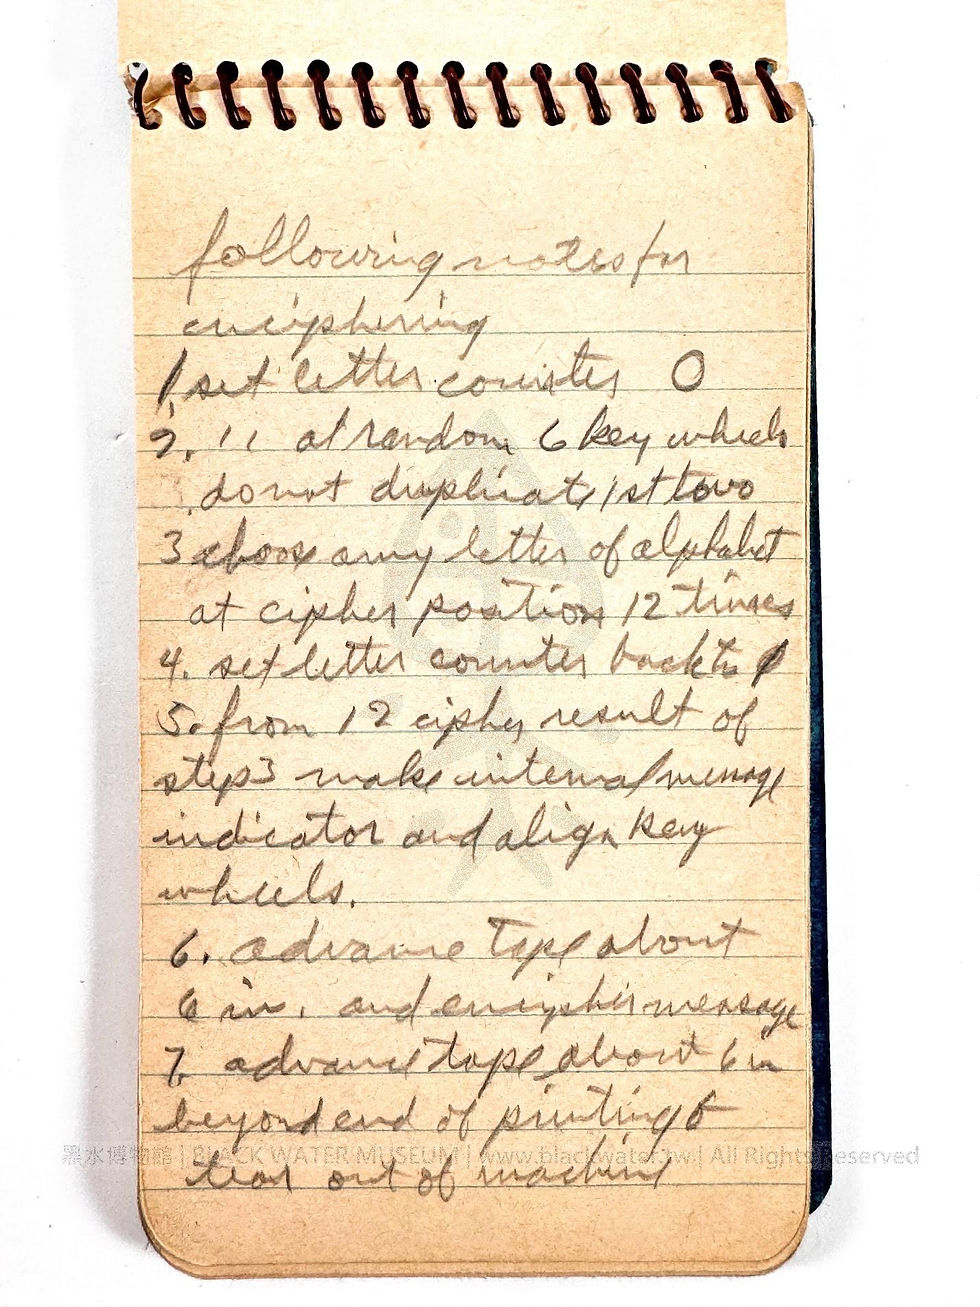 following notes for
enciphering
1. set letter counter 0
2. '' at random 6 key wheels
do not duplicate 1st two
3 choose any letter of alphabet
at cipher position 12 times
4. set letter counter back to 0
5. from 12 cipher result of
step 3 make internal message
indicator and align key
wheels.
6. advance tape about
6 in. and encipher message
7. advance tape about 6 in
beyond end of printing &
黑水博物館 | BLACK WATER MUSEUM | www.blackwater.tw | All Rights Reserved
tear out of machine